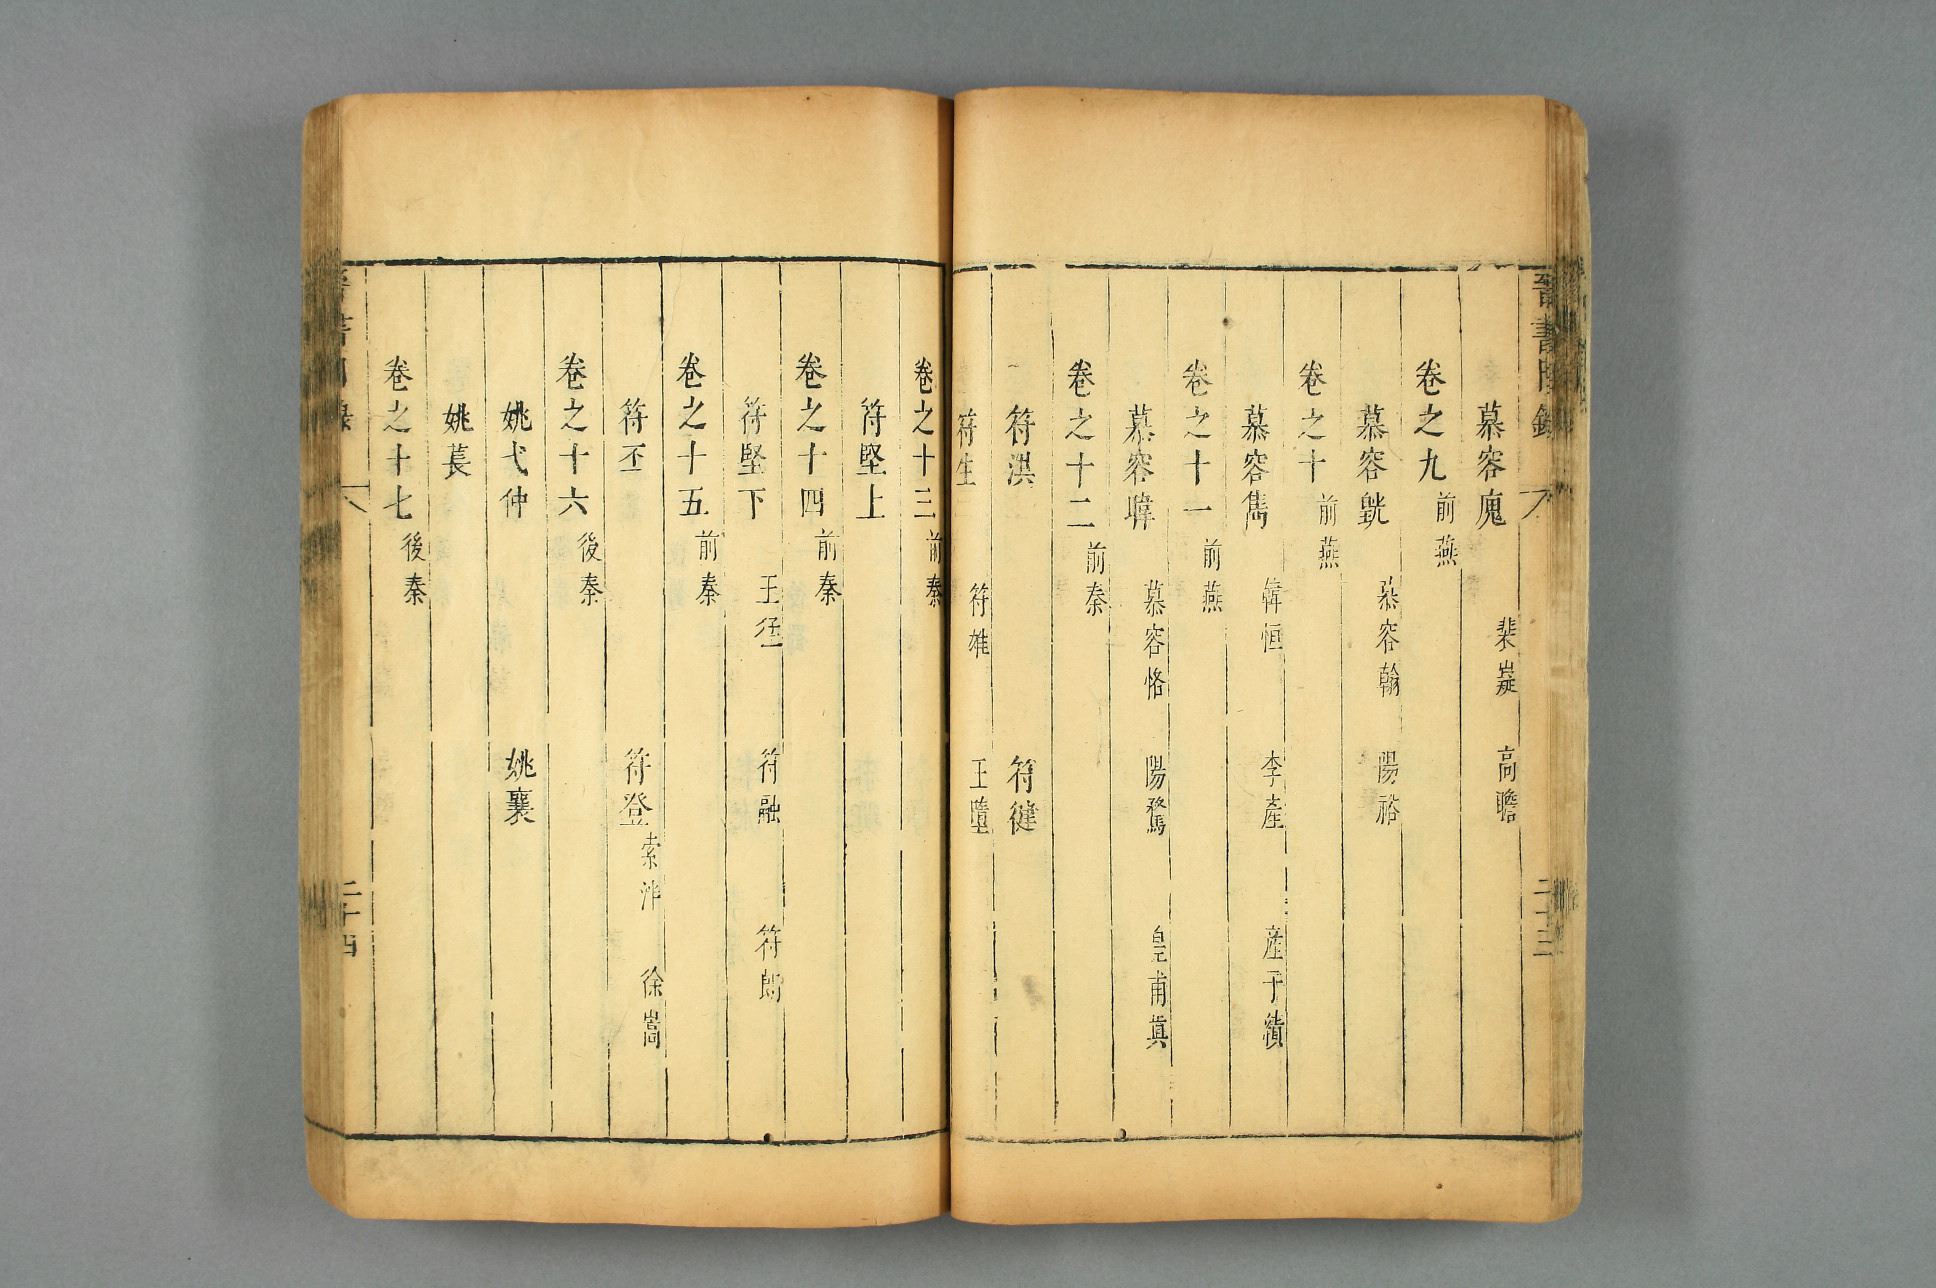 晉書目錄 二十三
慕容廆 裴嶷 高瞻
卷之九 前燕
慕容皝 慕容翰 陽裕
卷之十 前燕
慕容雋 韓恒 李產 產子績
卷之十一 前燕
慕容暐 慕容恪 陽騖 皇甫眞
卷之十二 前秦
符洪 符健
符生 符雄 王墮
卷之十三 前秦
符堅上
卷之十四 前秦
符堅下 王猛 符融 符朗
卷之十五 前秦
符丕 符登 索泮 徐嵩
卷之十六 後秦
姚弋仲 姚襄
姚萇
卷之十七 後秦
晉書目錄 二十四